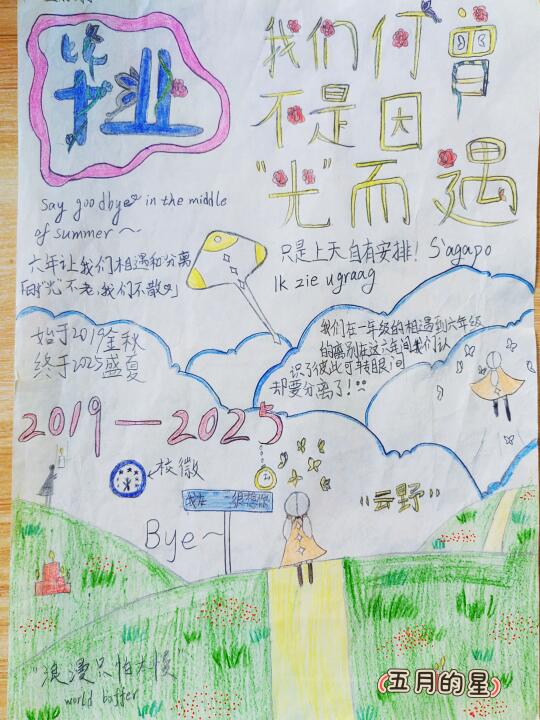 毕业
我们何曾
不是因
"光"而遇
say goodbye in the middle
of summer～
六年让我们相遇和分离
"光不老,我们不散"
只是上天自有安排! S'agapo
Ik zie u graag
始于2019金秋
终于2025盛夏
我们在一年级的相遇到六年级
的离别在这六年间我们认
识了彼此可转眼间
却要分离了!
2019—2025
校徽
很想你
"云野"
Bye～
"浪漫只怕太慢
world boffer
五月的星